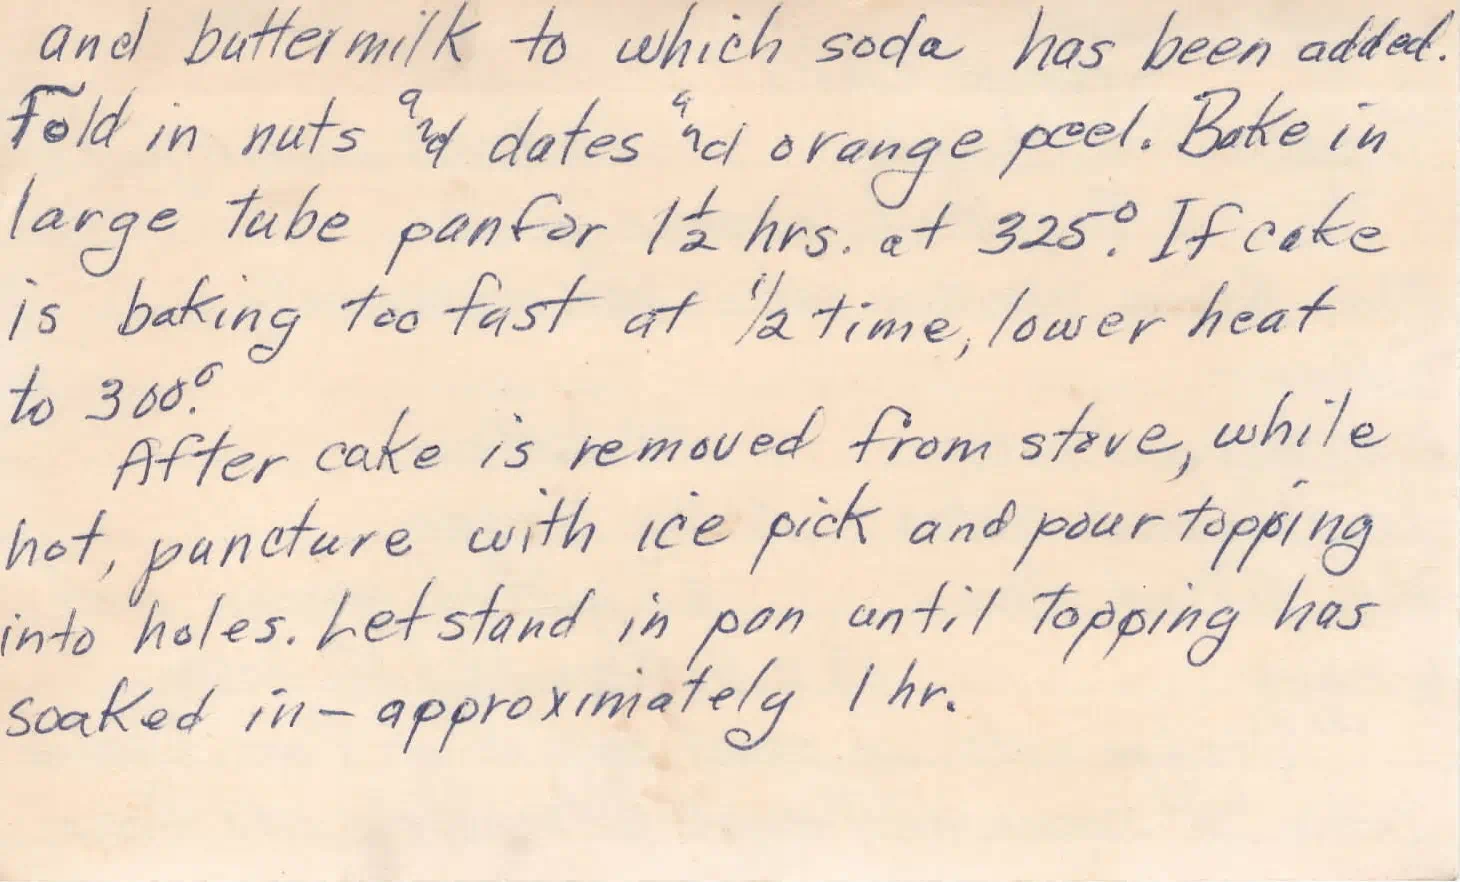 and buttermilk to which soda has been added.
Fold in nuts and dates and orange peel. Bake in
large tube pan for 1 1/2 hrs. at 325°. If cake
is baking too fast at 1/2 time, lower heat
to 300°.
After cake is removed from stove, while
hot, puncture with ice pick and pour topping
into holes. Let stand in pan until topping has
soaked in - approximately 1 hr.